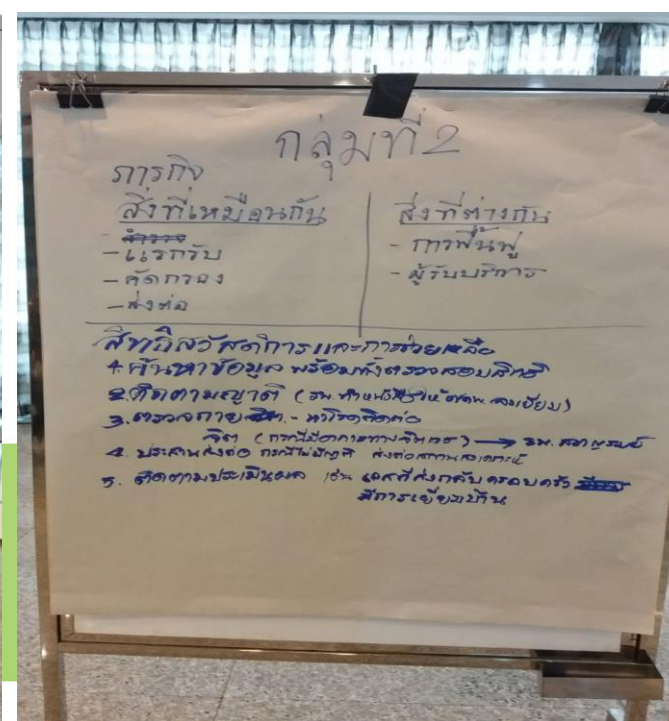 กลุ่มที่ 2
ภารกิจ
สิ่งที่เหมือนกัน
- สำรวจ
- แรกรับ
- คัดกรอง
- ส่งต่อ
สิ่งที่ต่างกัน
- การฟื้นฟู
- ผู้รับบริการ
สิทธิสวัสดิการและการช่วยเหลือ
1. ค้นหาข้อมูล พร้อมทั้งตรวจสอบสิทธิ
2. ติดตามญาติ (รพ. ทำหนังสือให้ ลงเยี่ยม)
3. ตรวจกาย - หาโรคติดต่อ
จิต (กรณีมีอาการทางจิตเวช) → รพ.
4. ประสานส่งต่อ กรณีไม่มีญาติ ส่งต่อสถานสงเคราะห์
5. ติดตามประเมินผล เช่น เคสที่ส่งกลับครอบครัว
มีการเยี่ยมบ้าน